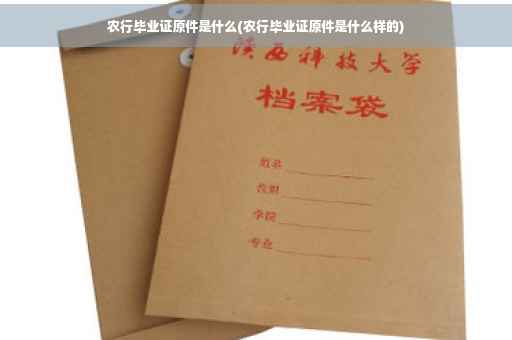 农行毕业证原件是什么(农行毕业证原件是什么样的)
陕西科技大学
档案袋
姓名
性别
学院
专业